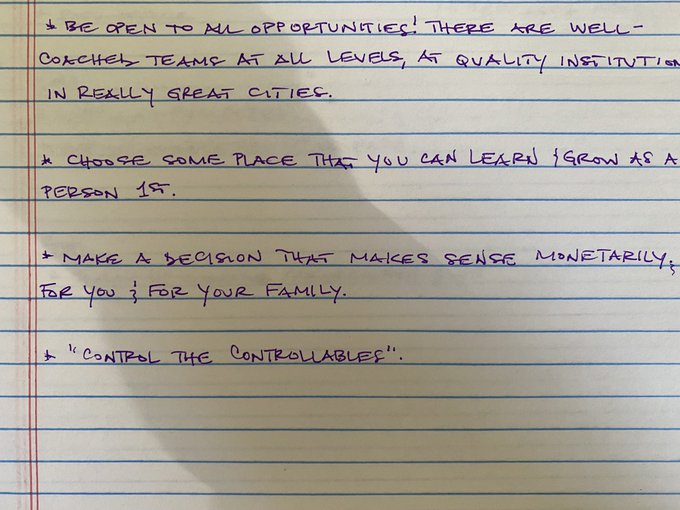 * BE OPEN TO ALL OPPORTUNITIES! THERE ARE WELL-
COACHED TEAMS AT ALL LEVELS, AT QUALITY INSTITUTION
IN REALLY GREAT CITIES.
* CHOOSE SOME PLACE THAT YOU CAN LEARN & GROW AS A
PERSON 1ST.
* MAKE A DECISION THAT MAKES SENSE MONETARILY,
FOR YOU & FOR YOUR FAMILY.
* "CONTROL THE CONTROLLABLES".